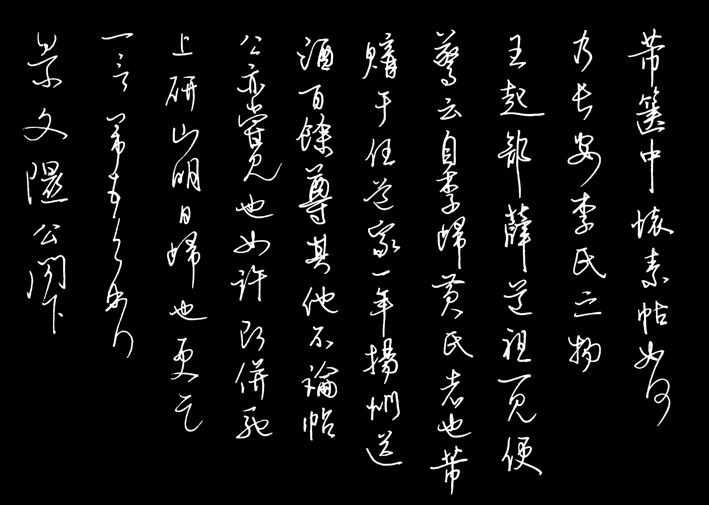 芾篋中懷素帖如何
乃長安李氏之物
王起部薛道祖一見便
驚云自李歸黃氏者也芾
購于任道家一年揚州送
酒百餘尊其他不論帖
公亦嘗見也如許即併馳
上研山明日歸也更乞
一言芾頓首再拜
景文隰公閣下